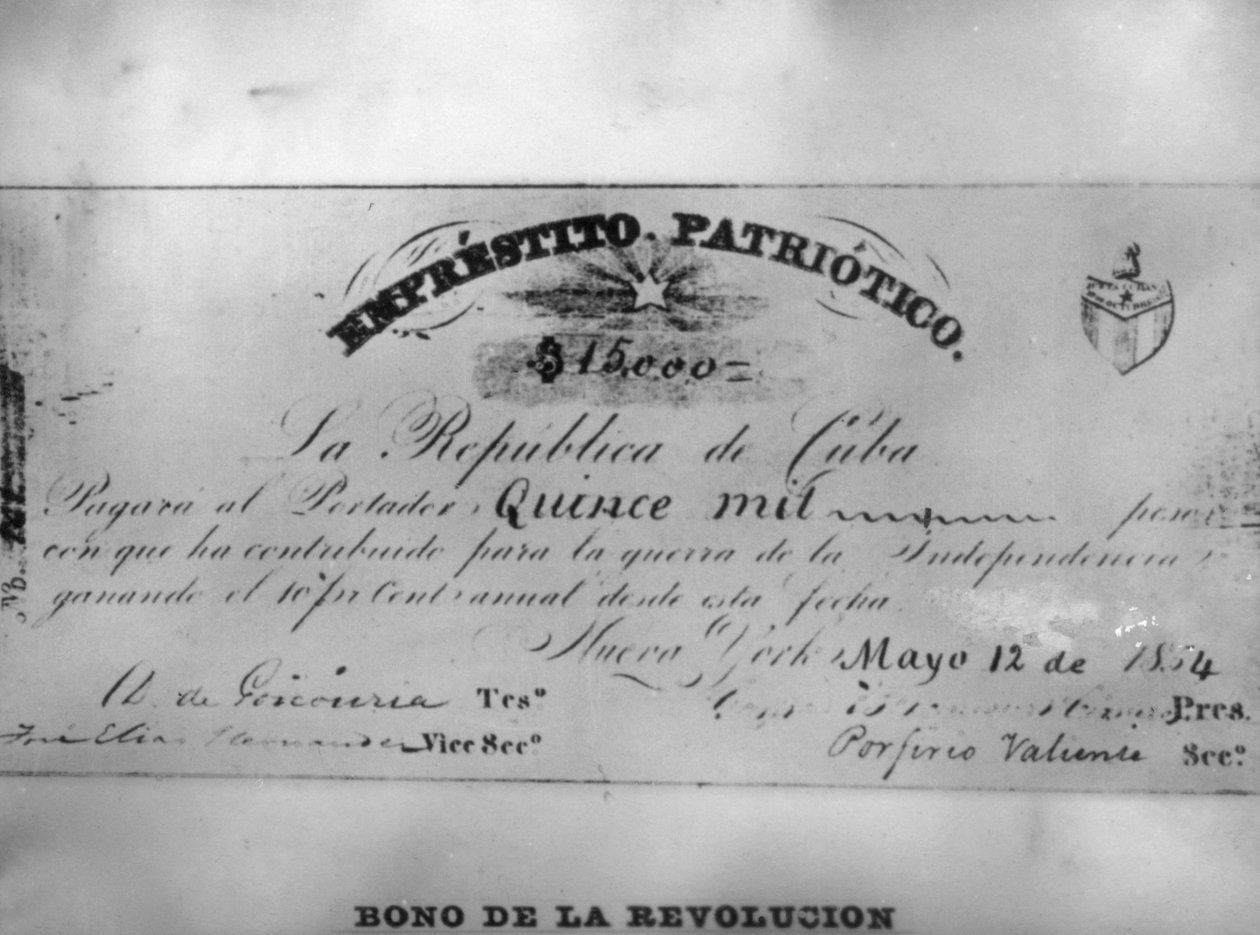 EMPRÉSTITO. PATRIÓTICO.
JUNTA CUBANA
$15.000=
La República de Cuba
Pagará al Portador Quince mil pesos
con que ha contribuido para la guerra de la Independencia
ganando el 10 pr Cent anual desde esta fecha.
Nueva York Mayo 12 de 1854
D. de Goicouria Tesº
Pres.
José Elias Hernandez Vice Secº
Porfirio Valiente Secº.
No.
BONO DE LA REVOLUCION